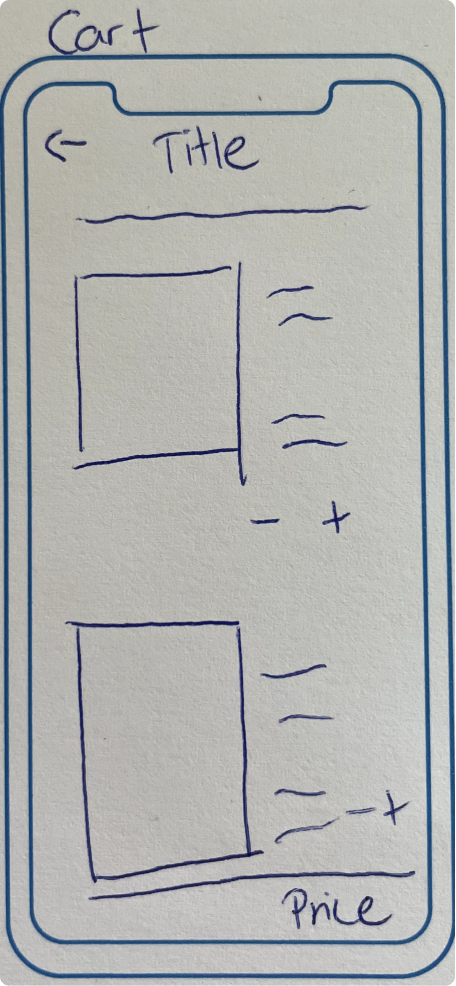 Cart
← Title
- +
- +
Price